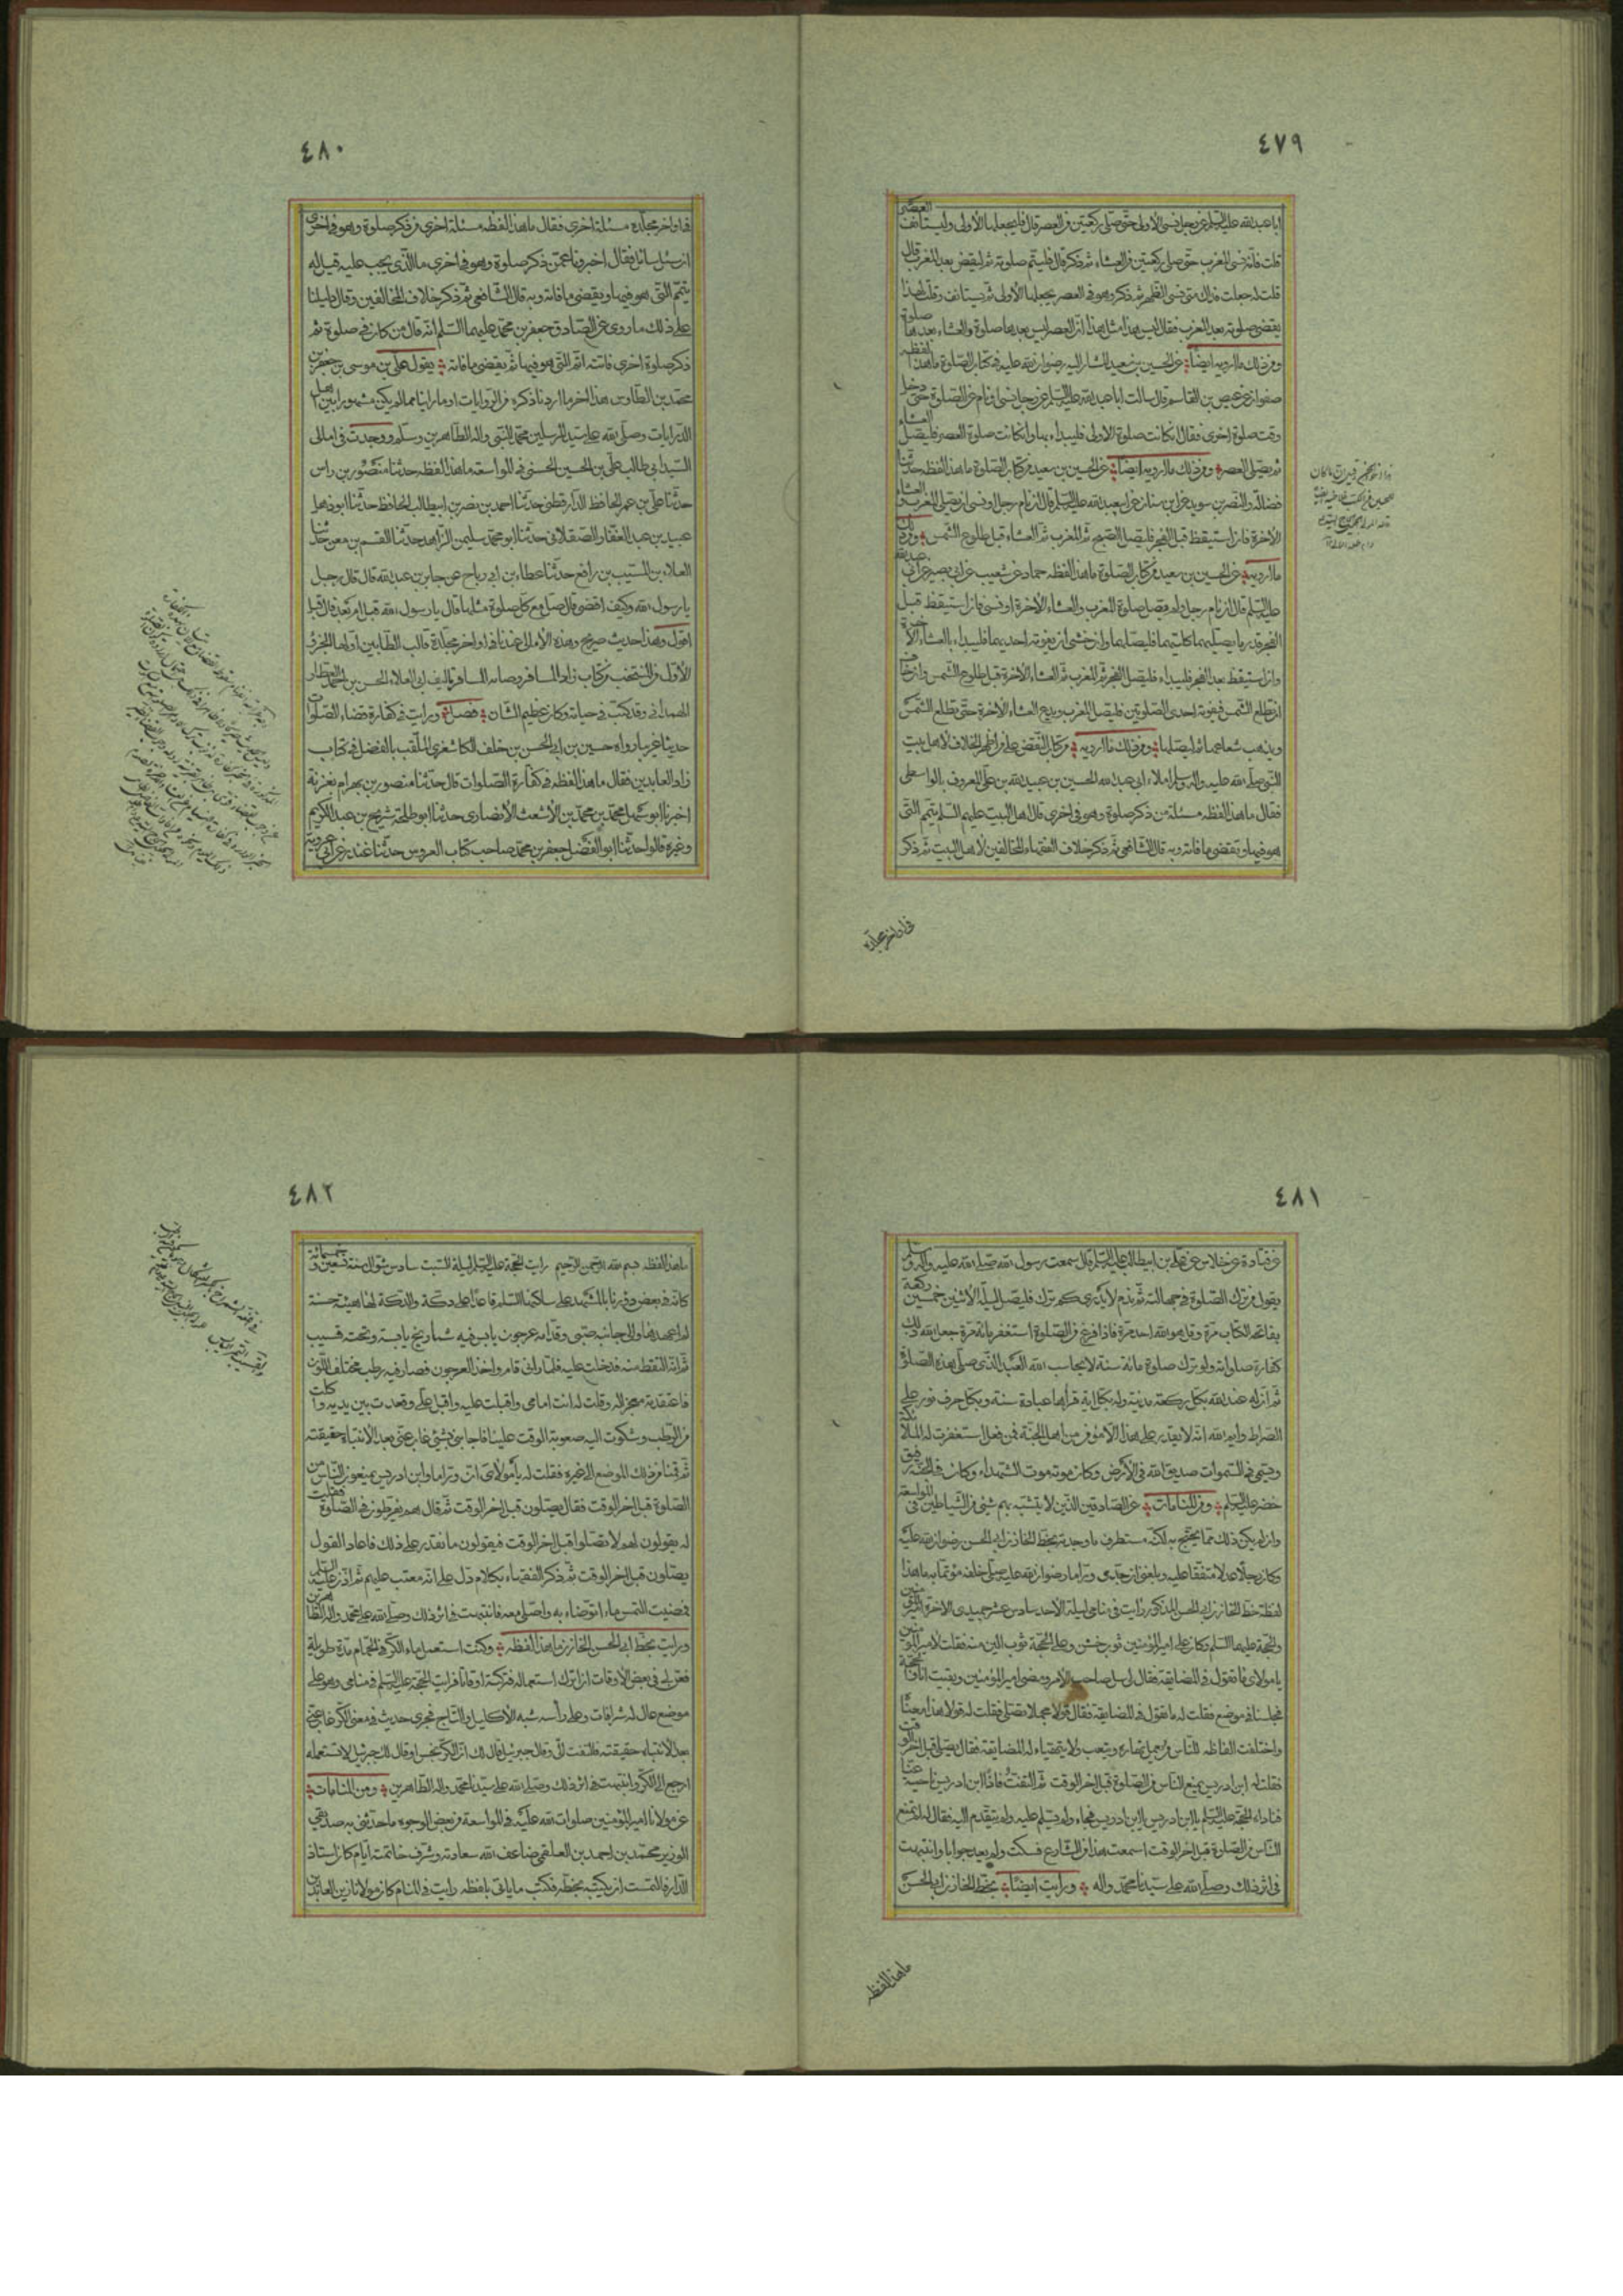 ٤٧٩
العصر
ابا عبد الله عليه السلم عن رجل نسى الأولى حتى صلى ركعتين من العصر قال فليجعلها الأولى وليستانف
قلت فانه نسى المغرب حتى صلى ركعتين من العشاء ثم ذكر قال فليتم صلوته ثم ليقض بعد المغرب قال
قلت له جعلت فداك متى نسى الظهر ثم ذكر وهو في العصر يجعلها الأولى ثم يستانف وقلت لهذا
يقضى صلوته بعد المغرب فقال ليس هذا مثل هذا ان العصر ليس بعدها صلوة والعشاء بعدها صلوة
ومن ذلك ما ارويه ايضا عن الحسين بن سعيد المشار اليه رضوان الله عليه في كتاب الصلوة ما هذا لفظه
صفوان عن عيص بن القاسم قال سالت ابا عبد الله عليه السلم عن رجل نسى او نام عن الصلوة حتى دخل
وقت صلوة اخرى فقال ان كانت صلوة الاولى فليبداء بها وان كانت صلوة العصر فليصل العشاء
ثم يصلى العصر ومن ذلك ما ارويه ايضا عن الحسين بن سعيد من كتاب الصلوة ما هذا لفظه حدثنا
فضالة والنضر بن سويد عن ابن سنان عن ابيعبد الله عليه السلم قال ان نام رجل او نسى ان يصلى المغرب والعشاء
الأخرة فان استيقظ قبل الفجر فليصل الصبح ثم المغرب ثم العشاء قبل طلوع الشمس ومن ذلك
ما ارويه عن الحسين بن سعيد من كتاب الصلوة ما هذا لفظه حماد عن شعيب عن ابى بصير عن ابى عبد الله
عليه السلم قال ان نام رجل ولم يصل صلوة المغرب والعشاء الأخرة او نسى فان استيقظ قبل
الفجر قدر ما يصليهما كلتيهما فليصلهما وان خشى ان يفوته احديهما فليبداء بالعشاء الأخرة
وان استيقظ بعد الفجر فليبداء فليصل الفجر ثم المغرب ثم العشاء الأخرة قبل طلوع الشمس وان خاف
ان تطلع الشمس فيفوته احدى الصلوتين فليصل المغرب ويدع العشاء الأخرة حتى تطلع الشمس
ويذهب شعاعها ثم ليصلها ومن ذلك ما ارويه من كتاب النقض على من اظهر الخلاف لاهل بيت
النبى صلى الله عليه واله وسلم املاء ابى عبد الله الحسين بن عبيد الله بن على المعروف بالواسطى
فقال ما هذا لفظه مسئلة من ذكر صلوة وهو في اخرى قال اهل البيت عليهم السلم يتم التى
هو فيها ويقضى ما فاته وبه قال الشافعى ثم ذكر خلاف الفقهاء المخالفين لاهل البيت ثم ذكر
في اواخر مجلده
٤٨٠
في اواخر مجلده مسئلة اخرى فقال ما هذا لفظه مسئلة اخرى من ذكر صلوة وهو في اخرى
ان سئل سائل فقال اخبرونا عمن ذكر صلوة وهو في اخرى ما الذى يجب عليه قيل له
يتم التى هو فيها ويقضى ما فاته وبه قال الشافعى ثم ذكر خلاف المخالفين وقال دليلنا
على ذلك ما روى عن الصادق جعفر بن محمد عليهما السلم انه قال من كان في صلوة ثم
ذكر صلوة اخرى فاتته اتم التى هو فيها ثم يقضى ما فاته يقول على بن موسى بن جعفر بن
محمد بن الطاوس هذا اخر ما اردنا ذكره من الروايات او ما راينا مما لم يكن مشهورا بين اهل
الدرايات وصلى الله على سيد المرسلين محمد النبى واله الطاهرين وسلم ووجدت في امالى
السيد ابى طالب على بن الحسين الحسنى في المواسعة ما هذا لفظه حدثنا منصور بن راس
حدثنا على بن عمر الحافظ الدارقطنى حدثنا احمد بن نصر بن ابيطالب الحافظ حدثنا ابو ذهل
عبيد بن عبد الغفار العسقلانى حدثنا ابو محمد سليمن الزاهد حدثنا القسم بن معن حدثنا
العلاء بن المسيب بن رافع حدثنا عطاء بن ابى رباح عن جابر بن عبد الله قال قال رجل
يا رسول الله وكيف اقضى قال صل مع كل صلوة مثلها قال يا رسول الله قبل ام بعد قال قبل
اقول وهذا حديث صريح وهذه الأمالى عندنا في اواخر مجلدة قالب الطالبين اولها الجزؤ
الأول من المنتخب من كتاب زاد المسافر وصاد المسافر تاليف ابى العلاء الحسن بن احمد العطار
الهمدانى وقد كتب في حياته وكان عظيم الشان فصل ورايت في كفارة قضاء الصلوات
حديثا غريبا رواه حسين بن ابى الحسن بن خلف الكاشغرى الملقب بالفضل في كتاب
زاد العابدين فقال ما هذا لفظه في كفارة الصلوات قال حدثنا منصور بن بهرام بغزنة
اخبرنا ابو سهل محمد بن محمد بن الأشعث الأنصارى حدثنا ابو طلحة شريح بن عبد الكريم
وغيره قالوا حدثنا ابو الفضل جعفر بن محمد صاحب كتاب العروس حدثنا غندر عن ابى عروبة
٤٨١
عن قتادة عن خلاس عن على بن ابيطالب عليه السلم قال سمعت رسول الله صلى الله عليه واله وسلم
يقول من ترك الصلوة في جهالته ثم ندم لا يدرى كم ترك فليصل ليلة الأثنين خمسين ركعة
بفاتحة الكتاب مرة وقل هو الله احد مرة فاذا فرغ من الصلوة استغفر مائة مرة جعل الله ذلك
كفارة صلواته ولو ترك صلوة مائة سنة لا يحاسب الله العبد الذى صلى هذه الصلوة
ثم ان له عند الله بكل ركعة مدينة وله بكل اية قراها عبادة سنة وبكل حرف نور على
الصراط وايم الله انه لا يقدر على هذا الا مؤمن من اهل الجنة فمن فعل استغفرت له الملائكة
وسمى في السموات صديق الله في الأرض وكان موته موت الشهداء وكان في الجنة رفيق
خضر عليه السلم ومن المنامات عن الصادقين الذين لا يتشبه بهم شئ من الشياطين في المواسعة
وان لم يكن ذلك مما يحتج به لكنه مستطرف ما وجدته بخط الخازن ابى الحسن رضوان الله عليه
وكان رجلا عدلا متفقا عليه وبلغنى ان جدى وراما رضوان الله عليه صلى خلفه مؤتما به ما هذا
لفظه خط الخازن ابى الحسن المذكور رايت في منامى ليلة الأحد سادس عشر جميدى الأخرة امير المؤمنين
والحجة عليهما السلم وكان على امير المؤمنين ثوب خشن وعلى الحجة ثوب الين منه فقلت لأمير المؤمنين
يا مولاى ما تقول في المضايقة فقال لى سل صاحب الأمر ومضى امير المؤمنين وبقيت انا والحجة
فجلسنا في موضع فقلت له ما تقول في المضايقة فقال قولا مجملا تصلى فقلت له قولا هذا معناه
واختلفت الفاظه للناس من يعمل نهاره ويتعب ولا يتهياء له المضايقة فقال يصلى قبل اخر الوقت
فقلت له ابن ادريس يمنع الناس من الصلوة قبل اخر الوقت ثم التفت فاذا ابن ادريس ناحية عنا
فناداه الحجة عليه السلم يا ابن ادريس يا ابن ادريس فجاء ولم يسلم عليه ولم يتقدم اليه فقال له لم تمنع
الناس من الصلوة قبل اخر الوقت اسمعت هذا من الشارع فسكت ولم يعد جوابا وانتبهت
في اثر ذلك وصلى الله على سيدنا محمد واله ورايت ايضا بخط الخازن ابى الحسن
ما هذا لفظه
٤٨٢
ما هذا لفظه بسم الله الرحمن الرحيم رايت الحجة عليه السلم ليلة السبت سادس شوال سنة تسعين وخمسمائة
كانه في بعض دورنا بالمشهد على ساكنه السلم قاعدا على دكة والدكة لها هيئة حسنة
لم اعهدها والى جانبه صبى وقدامه عرجون يابس فيه شماريخ يابسة وتحته قسيب
ثم انه التقط منه فدخلت عليه فلما رانى قام واخذ العرجون فصار فيه رطب مختلف اللون
فاعتقدته معجزا له وقلت له انت امامى واقبلت عليه واقبل على وقعدت بين يديه واكلت
من الرطب وشكوت اليه صعوبة الوقت علينا فاجابنى بشئ غاب عنى بعد الأنتباه حقيقته
ثم قمنا من ذلك الموضع الى غيره فقلت له يا مولاى ان وراما وابن ادريس يمنعون الناس من
الصلوة قبل اخر الوقت فقال يصلون قبل اخر الوقت ثم قال هم يفرطون في الصلوة فقلت
له يقولون لهم لا تصلوا قبل اخر الوقت فيقولون ما نقدر على ذلك فاعاد القول
يصلون قبل اخر الوقت ثم ذكر الفقهاء بكلام دل على انه معتب عليهم ثم اذن عليه السلم
فمضيت التمس ماء اتوضاء به واصلى معه فانتبهت في اثر ذلك وصلى الله على محمد واله الطاهرين
ورايت بخط ابى الحسن الخازن ما هذا لفظه وكنت استعمل ماء الكر في الحمام مدة طويلة
فعن لى في بعض الأوقات ان اترك استعماله فتركته اوقاتا فرايت الحجة عليه السلم في منامى وهو على
موضع عال له شرافات وعلى راسه شبه الأكليل والتاج فجرى حديث في معنى الكر غاب عنى
بعد الانتباه حقيقته فالتفت الى وقال جبرئيل قال لك ان الكر نجس او قال لك جبرئيل لا تستعمله
ارجع الى الكر وانتبهت في اثر ذلك وصلى الله على سيدنا محمد واله الطاهرين ومن المنامات
عن مولانا امير المؤمنين صلوات الله عليه في المواسعة من بعض الوجوه ما حدثنى به صديقى
الوزير محمد بن احمد بن العلقمى ضاعف الله سعادته وشرف خاتمته ايام كان استاذ
الدار فالتمست ان يكتبه بخطه فكتب ما ياتى بلفظه رايت في المنام كان مولانا زين العابدين